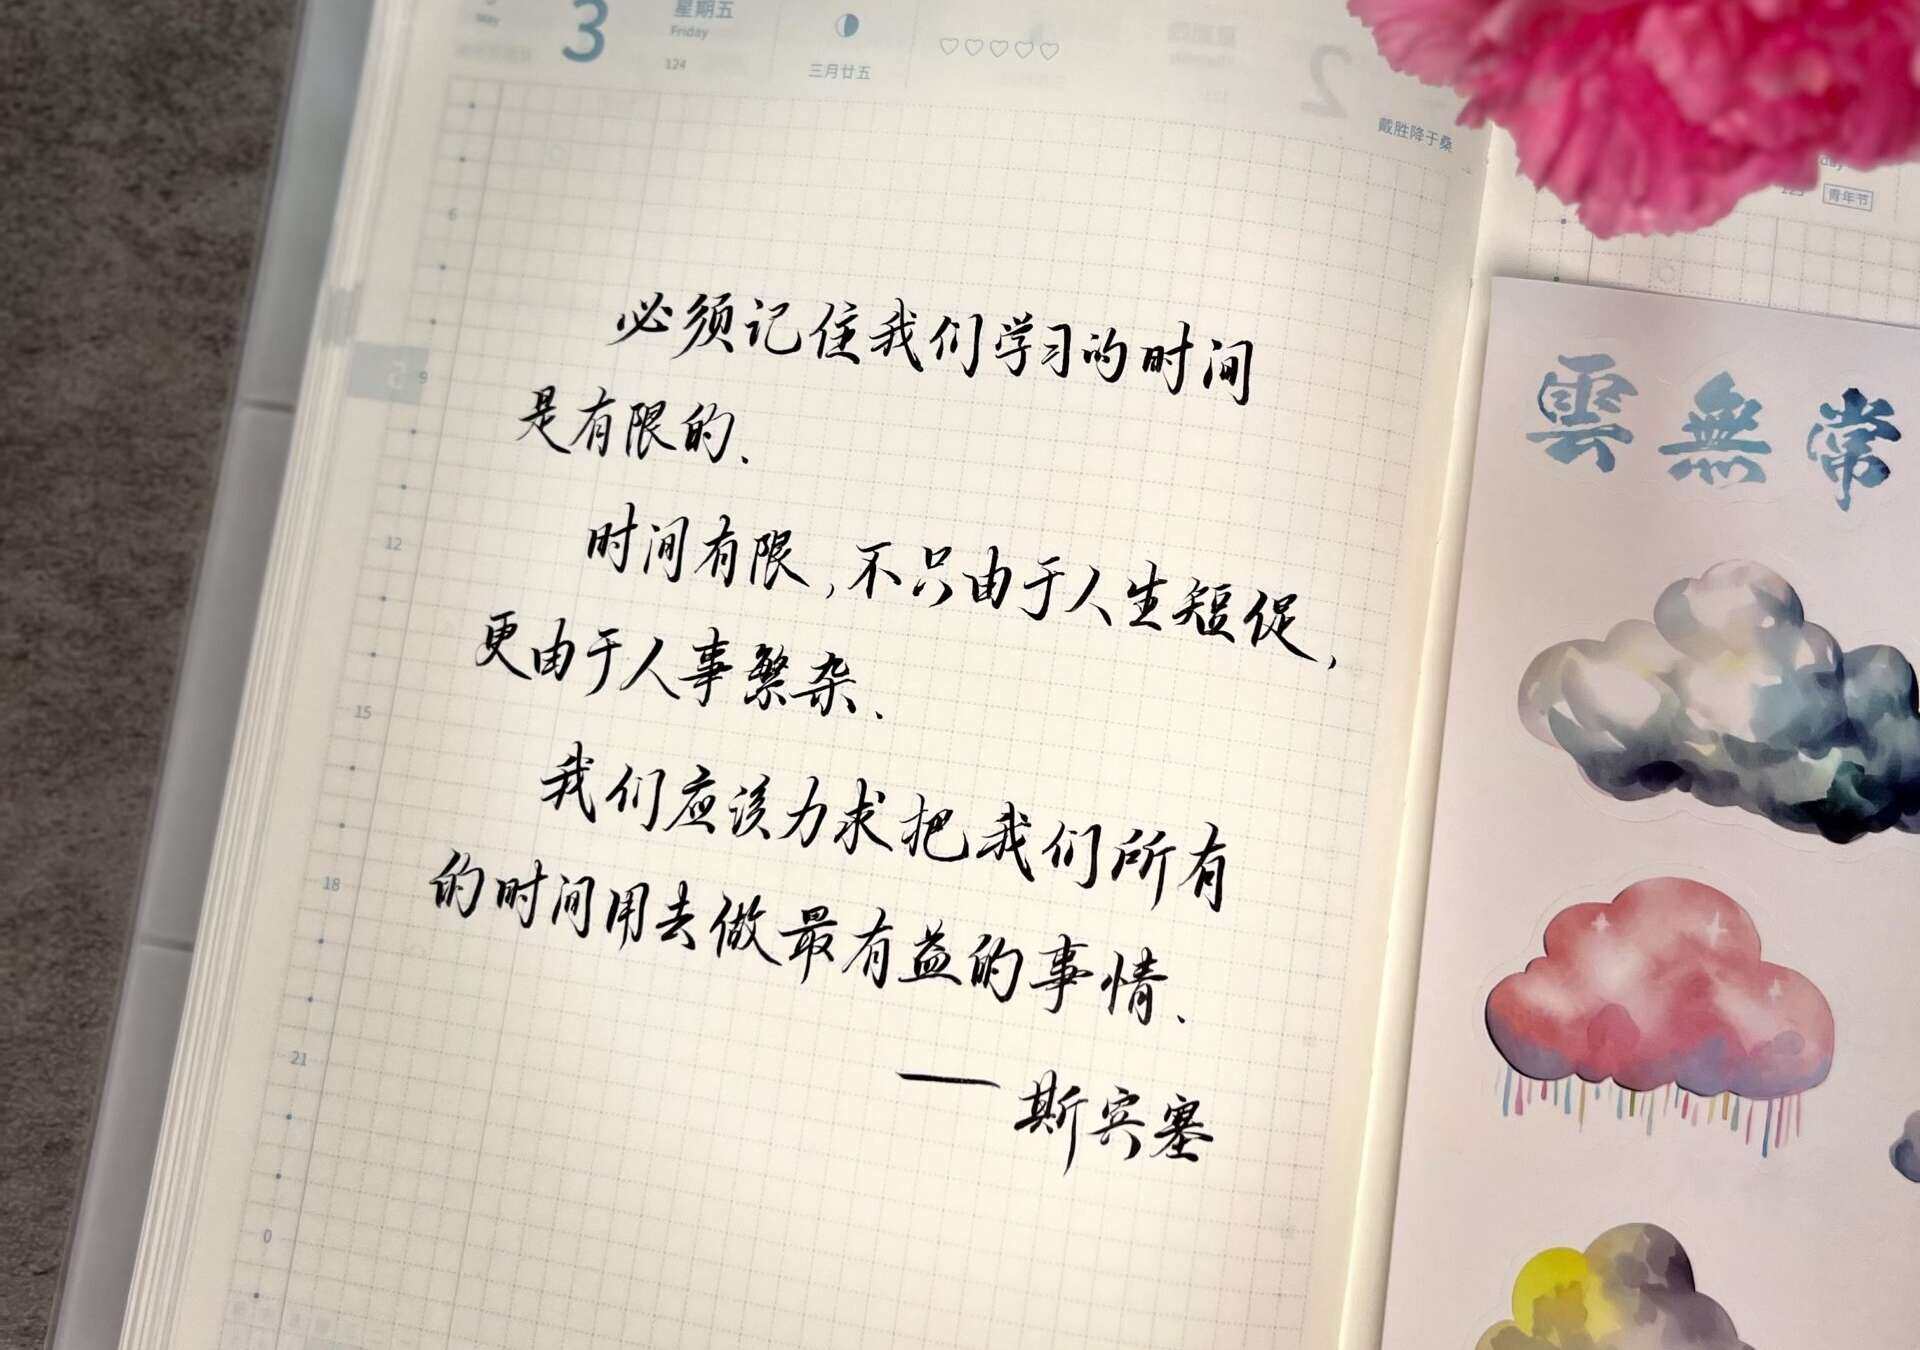 May
3
星期五
Friday
124
三月廿五
2
戴胜降于桑
青年节
6
5
9
12
15
18
21
0
必须记住我们学习的时间
是有限的.
时间有限,不只由于人生短促,
更由于人事繁杂.
我们应该力求把我们所有
的时间用去做最有益的事情.
——斯宾塞
雲無常